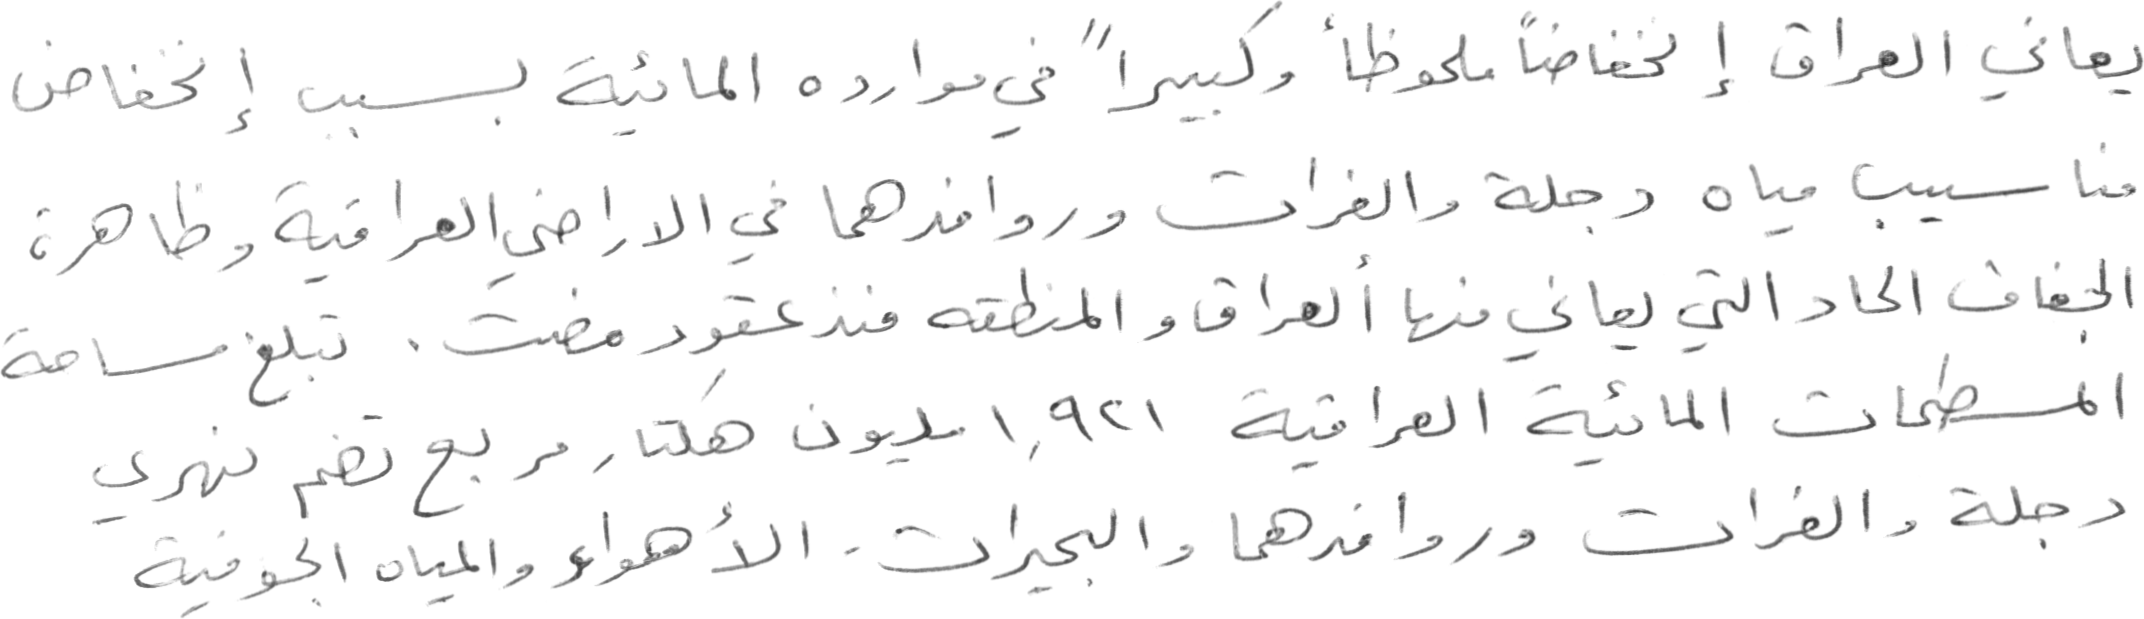 يعاني العراق إنخفاضاً ملحوظأ وكبيراً في موارده المائية بسبب إنخفاض
مناسيب مياه دجلة والفرات وروافدهما في الاراضي العراقية وظاهرة
الجفاف الحاد التي يعاني منها ألعراق والمنطقه منذ عقود مضت . تبلغ مساحة
المسطحات المائية العراقية ١,٩٢١ مليون هكتار مربع تضم نهري
دجلة والفرات وروافدهما والبحيرات . الأهواء والمياه الجوفية